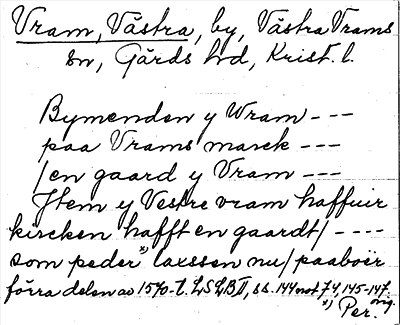 Vram, Västra, by, Västra Vrams
sn, Gärds hd, Krist. l.
Bymenden y Wram ---
paa Vrams marck ---
/en gaard y Vram ---
Jtem y Vestre vram haffuir
kircken hafft en gaardt/ ----
som peder*) laxssen nu/ paaboër
förra delen av 1570-t. LSLB II, ss. 144 not 74, 145-147.
*) Per. orig.